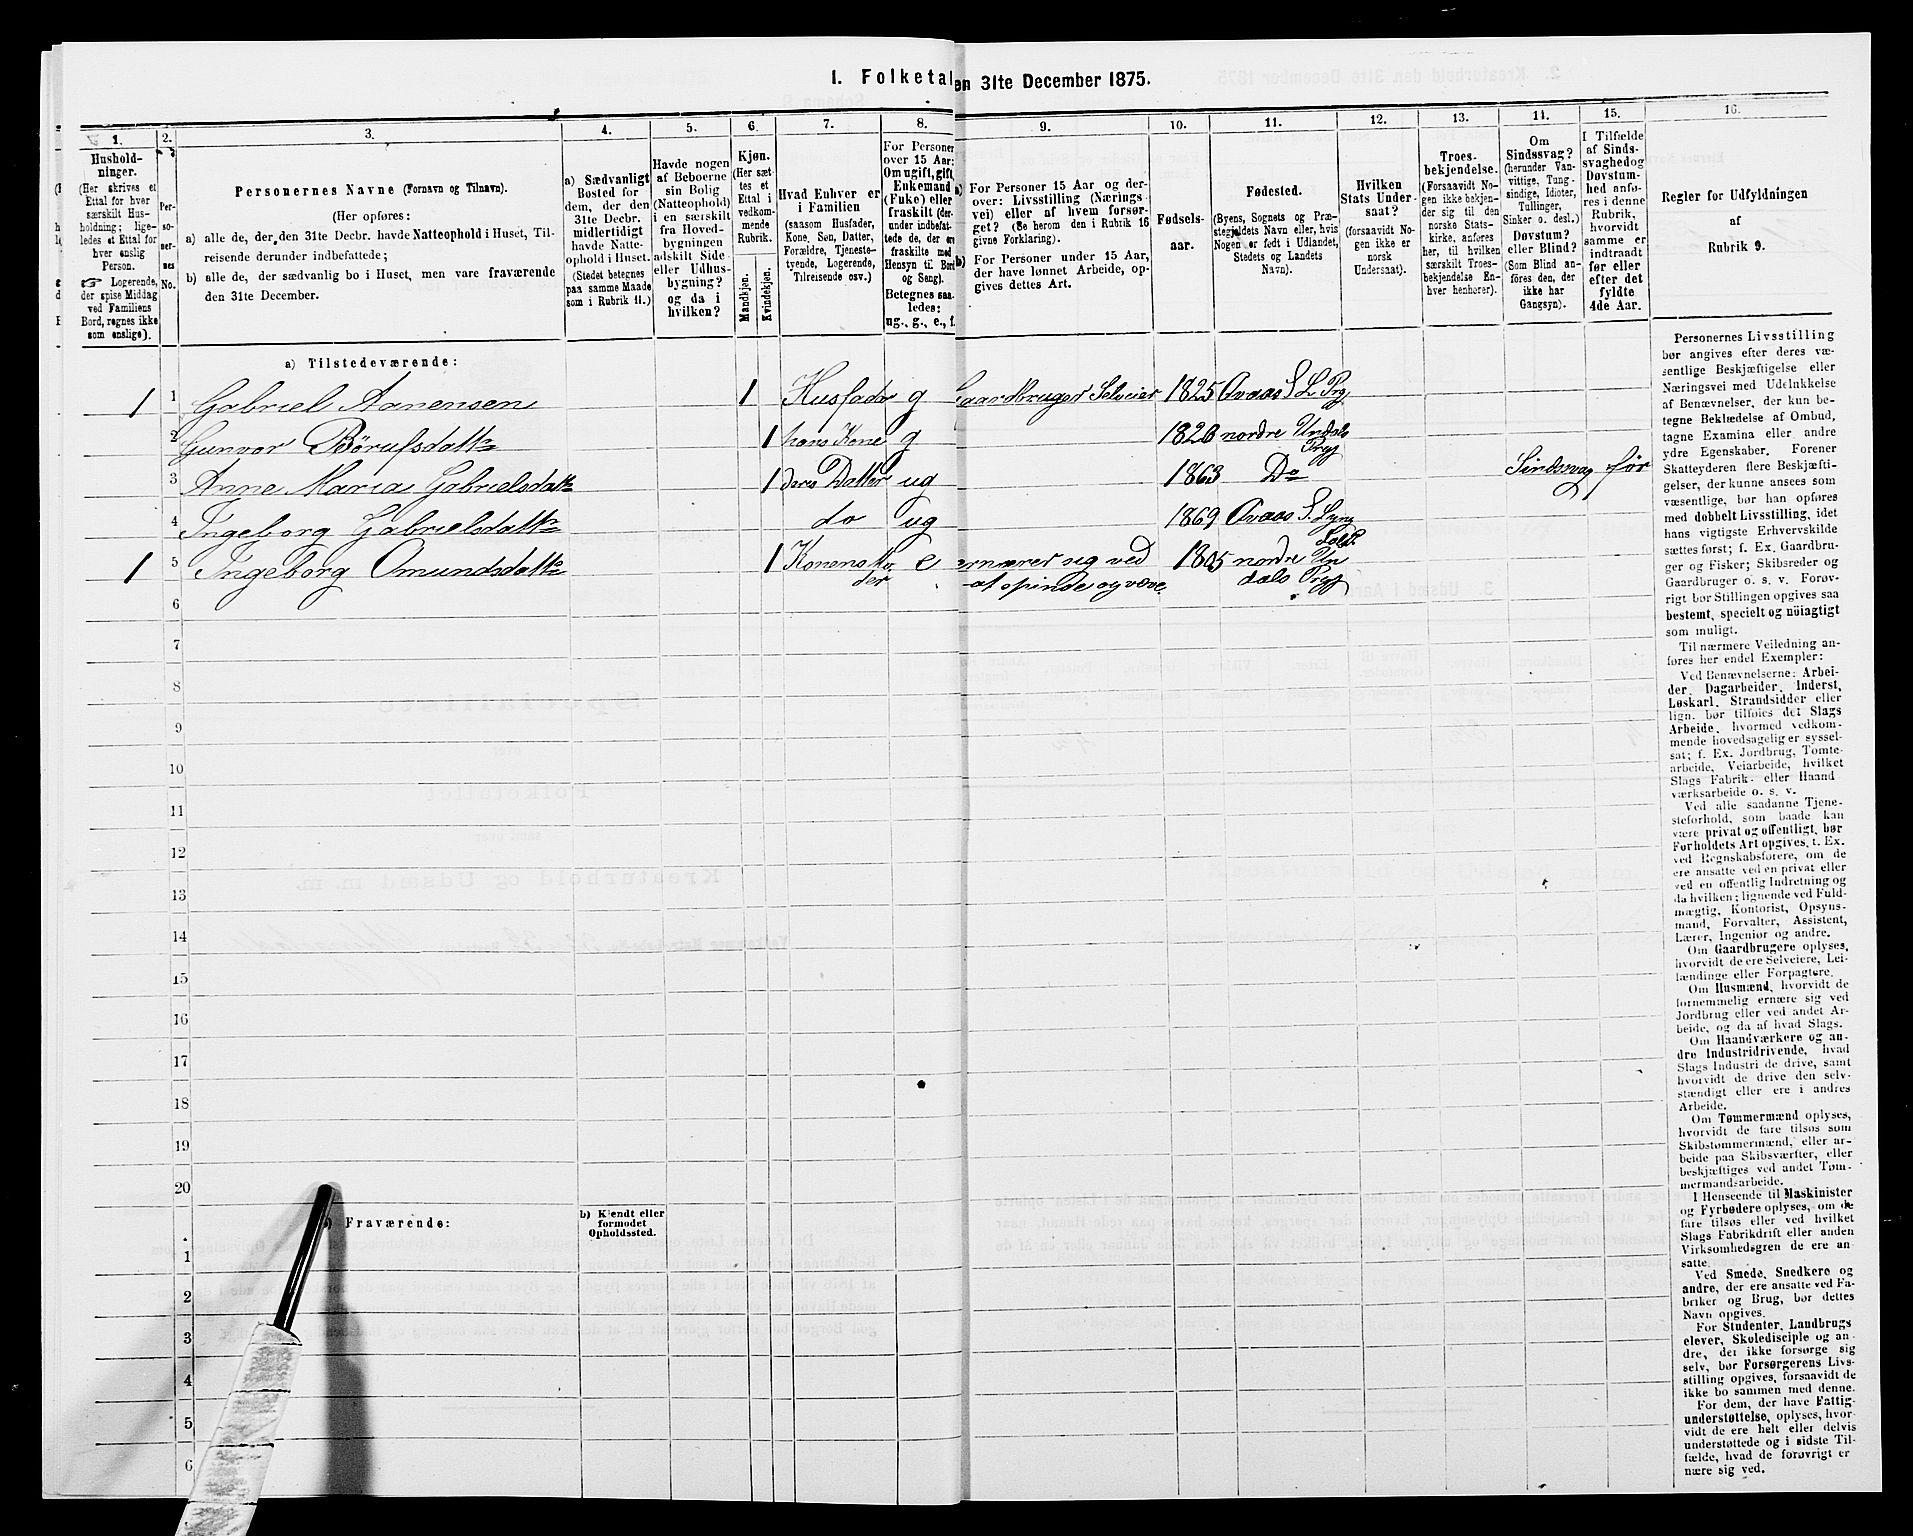 1. Folketal
en 31te December 1875.
1.
Hushold-
ninger.
(Her skrives et
Ettal for hver
særskilt Hus-
holdning; lige-
ledes et Ettal for
hver enslig
Person.
☞ Logerende,
der spise Middag
ved Familiens
Bord, regnes ikke
som enslige).
2.
Per-
so-
ner-
nes
No.
3.
Personernes Navne (Fornavn og Tilnavn).
(Her opføres:
a) alle de, der den 31te Decbr. havde Natteophold i Huset, Til-
reisende derunder indbefattede;
b) alle de, der sædvanlig bo i Huset, men vare fraværende
den 31te December.
4.
a) Sædvanligt
Bosted for
dem, der den
31te Decbr.
midlertidigt
havde Natte-
ophold i Huset.
(Stedet betegnes
paa samme Maade
som i Rubrik 11.)
5.
Havde nogen
af Beboerne
sin Bolig
(Natteophold)
i en særskilt
fra Hoved-
bygningen
adskilt Side-
eller Udhus-
bygning?
og da i
hvilken?
6.
Kjøn.
(Her sæt-
tes et
Ettal i
vedkom-
mende
Rubrik.
Mandkjøn.
Kvindekjøn.
7.
Hvad Enhver er
i Familien
(saasom Husfader,
Kone, Søn, Datter,
Forældre, Tjeneste-
tyende, Logerende,
Tilreisende osv.)
8.
For Personer
over 15 Aar:
Om ugift, gift,
Enkemand
(Enke) eller
fraskilt (der-
under indbefat-
tede de, der ere
fraskilte med
Hensyn til Bord
og Seng).
Betegnes saa-
ledes:
ug., g., e., f.
9.
a) For Personer 15 Aar og der-
over: Livsstilling (Nærings
vei) eller af hvem forsør-
get? (Se herom den i Rubrik 16
givne Forklaring).
b) For Personer under 15 Aar,
der have lønnet Arbeide, op-
gives dettes Art.
10.
Fødsels-
aar.
11.
Fødested.
(Byens, Sognets og Præ-
stegjeldets Navn, eller, hvis
Nogen er født i Udlandet,
Stedets og Landets
Navn).
12.
Hvilken
Stats Under-
saat?
(forsaavidt No-
gen ikke er
norsk
Undersaat).
13.
Troes-
bekjendelse.
(Forsaavidt No-
gen ikke bekjen-
der sig til den
norske Stats-
kirke, anføres
her, til hvilken
særskilt Troes-
bekjendelse En-
hver henhører).
14.
Om
Sindssvag?
(herunder Van-
vittige, Tung-
sindige, Idioter,
Tullinger,
Sinker o. desl.)
Døvstum?
eller Blind?
(Som Blind an-
føres den, der
ikke har
Gangsyn).
15.
I Tilfælde
af Sinds-
svaghed og
Døvstum-
hed anfø-
res i denne
Rubrik,
hvorvidt
samme er
indtraadt
før eller
efter det
fyldte
4de Aar.
16.
Regler for Udfyldningen
af
Rubrik 9.
a) Tilstedeværende:
1 1 Gabriel Aanensen 1 Husfader g Gaardbruger Selveier 1825 Qvaas S. L. Prgj
2 Gunvor Börufsdatter 1 hans Kone g 1820 nordre Undals Prgj
3 Anne Maria Gabrielsdatter 1 deres Datter ug 1863 Do Sindssvag før
4 Ingeborg Gabrielsdatter do ug 1869 Qvaas S. Lyng
1 5 Ingeborg Omundsdatter 1 Konensmo e ernærer sig ved 1805 nordre Un
der at spinde og væve. dals Prgj
6
7
8
9
10
11
12
13
14
15
16
17
18
19
20
b) Fraværende:
b) Kjendt eller
formodet
Opholdssted.
1
2
3
4
5
6
Personernes Livsstilling
bør angives efter deres væ-
sentlige Beskjæftigelse eller
Næringsvei med Udelukkelse
af Benævnelser, der kun be-
tegne Beklædelse af Ombud,
tagne Examina eller andre
ydre Egenskaber. Forener
Skatteyderen flere Beskjæfti-
gelser, der kunne ansees som
væsentlige, bør han opføres
med dobbelt Livsstilling, idet
hans vigtigste Erhvervskilde
sættes først; f. Ex. Gaardbru-
ger og Fisker; Skibsreder og
Gaardbruger o. s. v. Forøv-
rigt bør Stillingen opgives saa
bestemt, specielt og nöiagtigt
som muligt.
Til nærmere Veiledning an-
føres her endel Exempler:
Ved Benævnelserne: Arbei-
der, Dagarbeider, Inderst,
Løskarl, Strandsidder eller
lign. bør tilføies det Slags
Arbeide, hvormed vedkom-
mende hovedsagelig er syssel-
sat; f. Ex. Jordbrug, Tomte-
arbeide, Veiarbeide, hvilket
Slags Fabrik- eller Haand
værksarbeide o. s. v.
Ved alle saadanne Tjene-
steforhold, som baade kan
være privat og offentligt, bør
Forholdets Art opgives, t. Ex.
ved Regnskabsførere, om de
ere ansatte ved en privat eller
ved en offentlig Indretning og
da hvilken; lignende ved Fuld-
mægtig, Kontorist, Opsyns-
mand, Forvalter, Assistent,
Lærer, Ingeniør og andre.
Om Gaardbrugere oplyses,
hvorvidt de ere Selveiere, Lei-
lændinge eller Forpagtere.
Om Husmænd, hvorvidt de
fornemmelig ernære sig ved
Jordbrug eller ved andet Ar-
beide, og da af hvad Slags.
Om Haandværkere og an-
dre Industridrivende, hvad
Slags Industri de drive, samt
hvorvidt de drive den selv-
stændigt eller ere i andres
Arbeide.
Om Tømmermænd oplyses,
hvorvidt de fare tilsøs som
Skibstømmermænd, eller ar-
beide paa Skibsværfter, eller
beskjæftiges ved andet Tøm-
mermandsarbeide.
I Henseende til Maskinister
og Fyrbødere oplyses, om de
fare tilsøs eller ved hvilket
Slags Fabrikdrift eller anden
Virksomhedsgren de ere an-
satte.
Ved Smede, Snedkere og
andre, der ere ansatte ved Fa-
briker og Brug, bør dettes
Navn opgives.
For Studenter, Landbrugs
elever, Skoledisciple og an-
dre, der ikke forsørge sig
selv, bør Forsørgerens Livs-
stilling opgives, forsaavidt de
ikke bo sammen med denne.
For dem, der have Fattig-
understøttelse, oplyses, hvor-
vidt de ere helt eller delvis
understøttede og i sidste Til-
fælde, hvad de forøvrigt er
nære sig ved.